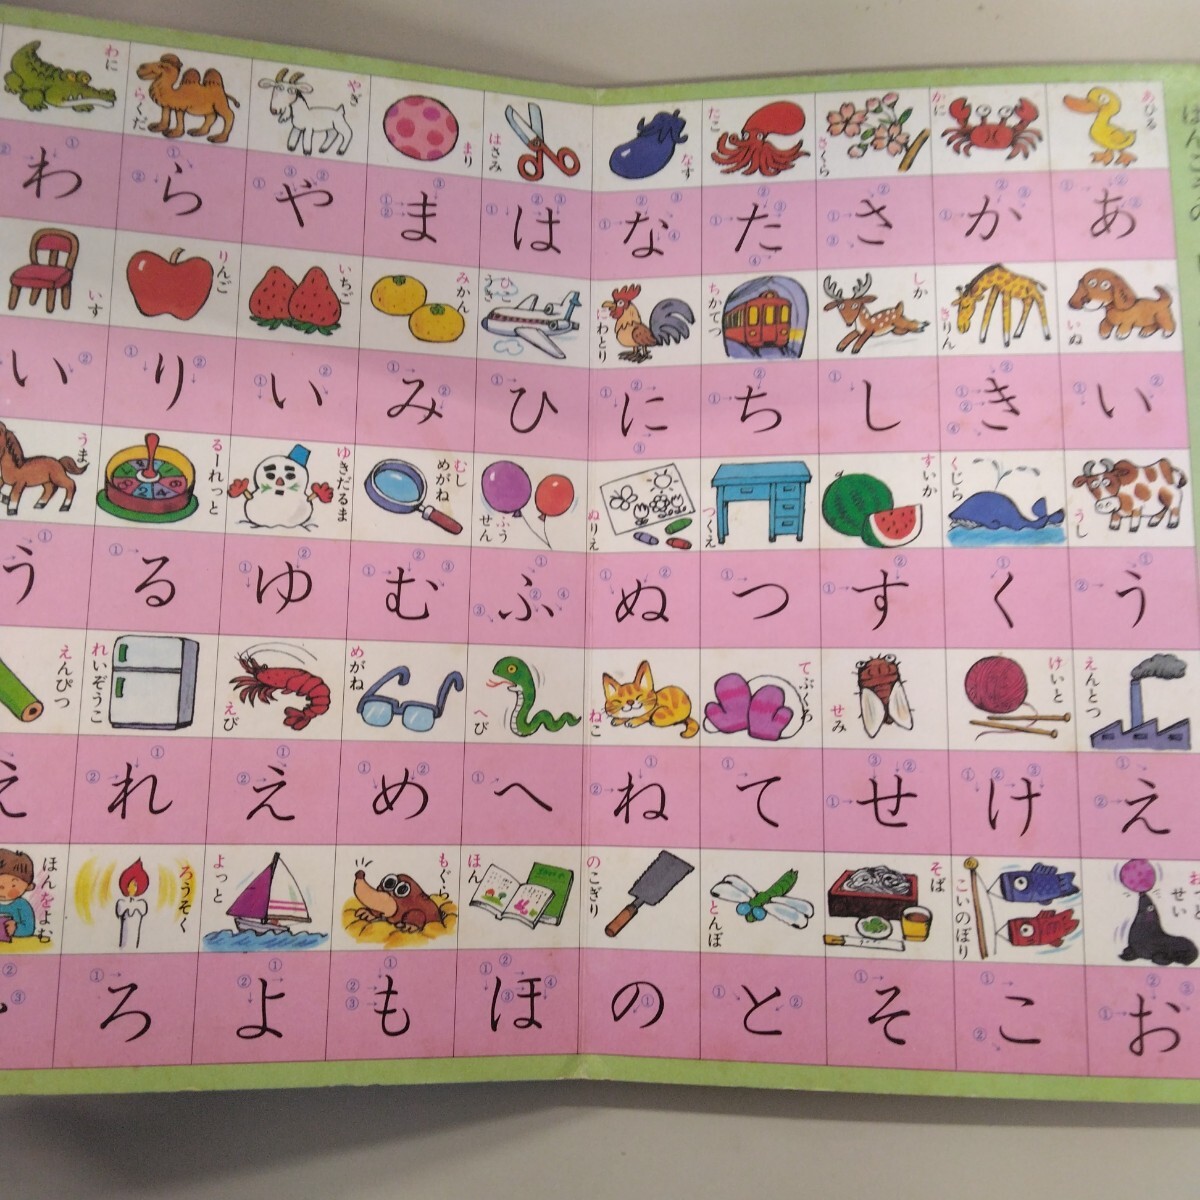 あひる
あ
いぬ
い
うし
う
えんとつ
え
お
かに
か
きりん
き
くじら
く
けいと
け
こいのぼり
こ
さくら
さ
しか
し
すいか
す
せみ
せ
そば
そ
たこ
た
ちかてつ
ち
つくえ
つ
てぶくろ
て
とんぼ
と
なす
な
にわとり
に
ぬりえ
ぬ
ねこ
ね
のこぎり
の
はさみ
は
ひこ
うき
ひ
ふう
せん
ふ
へび
へ
ほん
ほ
まり
ま
みかん
み
むし
めがね
む
めがね
め
もぐら
も
やぎ
や
いちご
い
ゆきだるま
ゆ
えび
え
よっと
よ
らくだ
ら
りんご
り
るーれっと
る
れいぞうこ
れ
ろうそく
ろ
わに
わ
いす
い
うま
う
えんぴつ
え
ほんをよむ